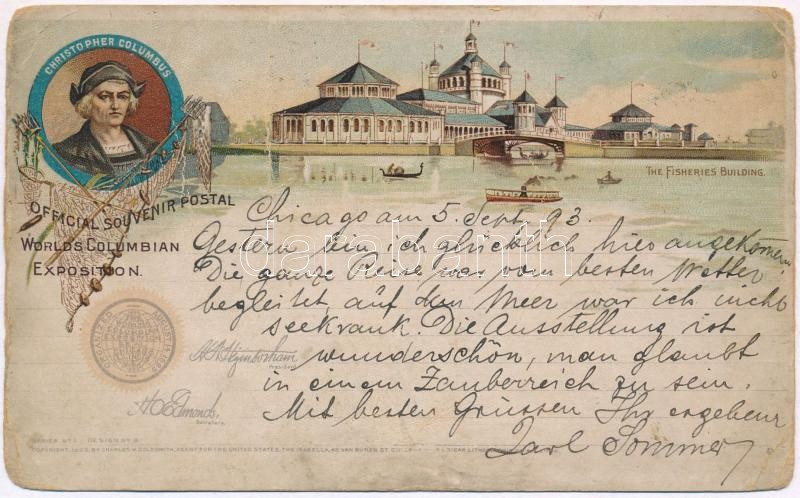 CHRISTOPHER COLUMBUS
THE FISHERIES BUILDING.
OFFICIAL SOUVENIR POSTAL
WORLDS COLUMBIAN
EXPOSITION.
Chicago am 5. Sept. 93.
Gestern bin ich glücklich hier angekommen
Die ganze Reise war vom besten Wetter
begleitet, auf dem Meer war ich nicht
seekrank. Die Ausstellung ist
wunderschön, man glaubt
in einem Zauberreich zu sein.
Mit besten Grüssen Ihr ergebener
Carl Sommer
ORGANIZED AUGUST 1893
President.
H.O. Edmonds
Secretary.
SERIES No 1. DESIGN No
COPYRIGHT, BY CHARLES W. GOLDSMITH, AGENT FOR THE UNITED STATES, THE ISABELLA, VAN BUREN ST.
darabanth